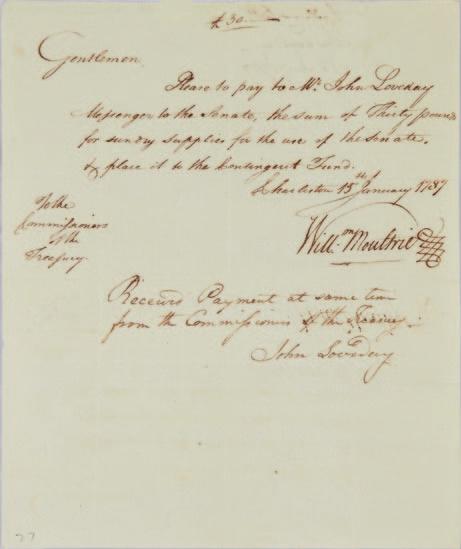 £ 30
Gentlemen
Please to pay to Mr. John Loveday
Messenger to the Senate, the sum of Thirty pounds
for sundry supplies for the use of the Senate.
& place it to the Contingent Fund.
Charleston 15th January 1787
To the
Commissioners
of the
Treasury.
Willm. Moultrie
Received Payment at same time
from the Commissioners of the Treasury
John Loveday
77